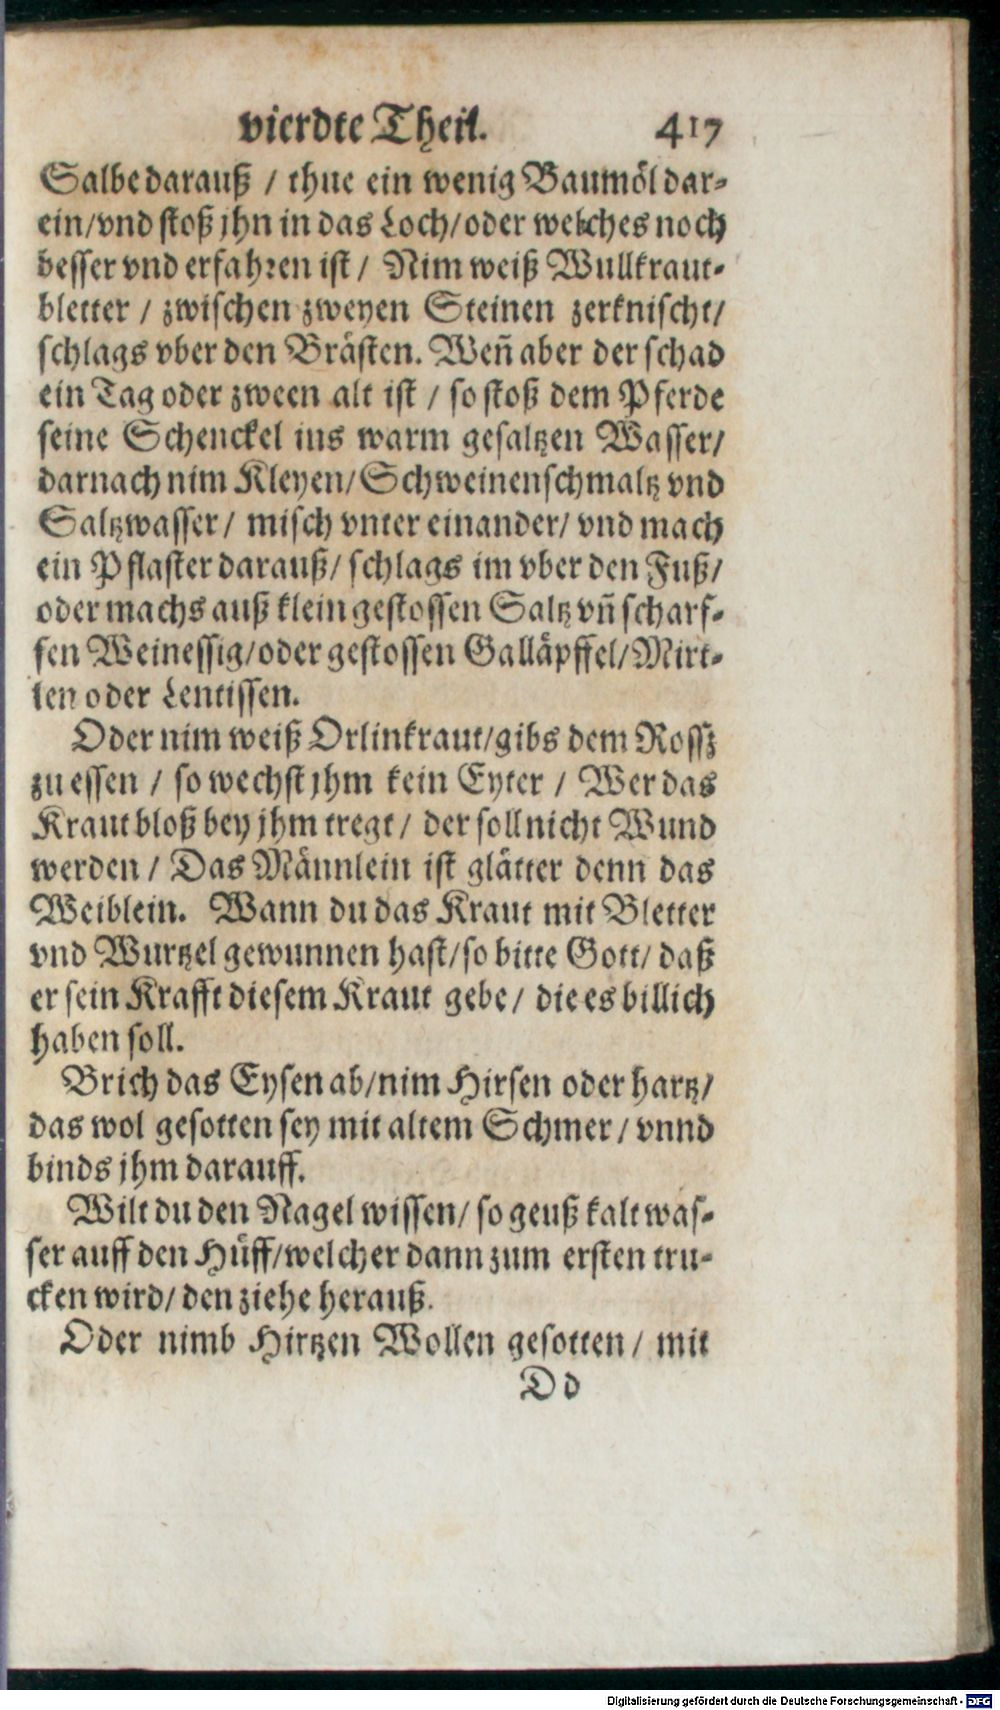 vierdte Theil. 417
Salbe darauß / thue ein wenig Baumöl dar-
ein/vnd stoß jhn in das Loch/oder welches noch
besser vnd erfahren ist / Nim weiß Wullkraut-
bletter / zwischen zweyen Steinen zerknischt/
schlags vber den Brästen. Weñ aber der schad
ein Tag oder zween alt ist / so stoß dem Pferde
seine Schenckel ins warm gesaltzen Wasser/
darnach nim Kleyen/Schweinenschmaltz vnd
Saltzwasser/ misch vnter einander/ vnd mach
ein Pflaster darauß/ schlags im vber den Fuß/
oder machs auß klein gestossen Saltz vñ scharf-
fen Weinessig/oder gestossen Galläpffel/Mirt-
len oder Lentissen.
Oder nim weiß Orlinkraut/gibs dem Rossz
zu essen / so wechst jhm kein Eyter / Wer das
Kraut bloß bey jhm tregt/ der soll nicht Wund
werden / Das Männlein ist glätter denn das
Weiblein. Wann du das Kraut mit Bletter
vnd Wurtzel gewunnen hast/so bitte Gott/ daß
er sein Krafft diesem Kraut gebe/ die es billich
haben soll.
Brich das Eysen ab/nim Hirsen oder hartz/
das wol gesotten sey mit altem Schmer/ vnnd
binds jhm darauff.
Wilt du den Nagel wissen/ so geuß kalt was-
ser auff den Hüff/welcher dann zum ersten tru-
cken wird/ den ziehe herauß.
Oder nimb Hirtzen Wollen gesotten/ mit
Dd
Digitalisierung gefördert durch die Deutsche Forschungsgemeinschaft - DFG